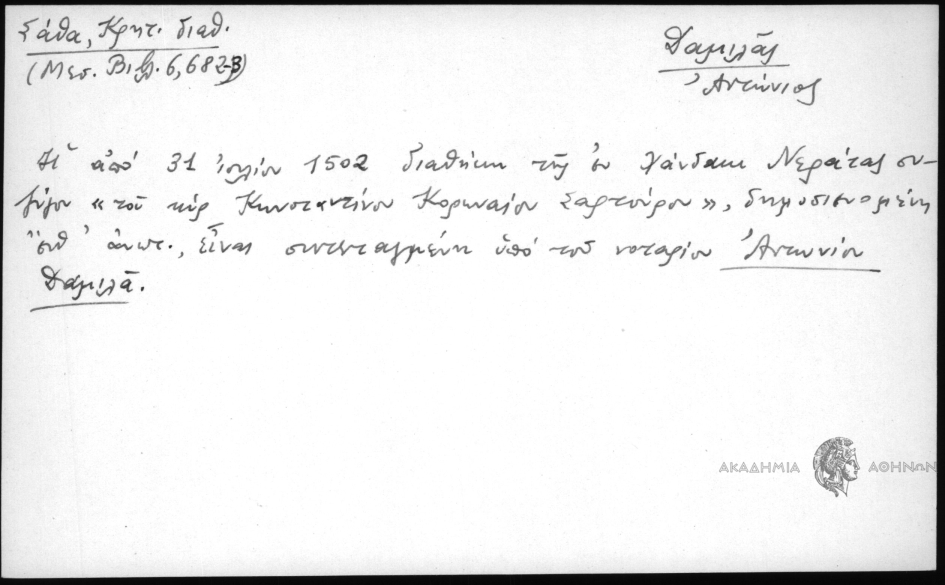 Σάθα, Κρητ. διαθ.
(Μεσ. Βιβλ. 6, 682-3)
Δαμιλᾶς
Ἀντώνιος
Ἡ ἀπό 31 ἰουλίου 1502 διαθήκη τῆς ἐν Χάνδακι Νεράτας συ-
ζύγου «τοῦ κύρ Κωνσταντίνου Κορηναίου Σαρτούρου», δημοσιευομένη
ἔνθ' ἀνωτ., εἶναι συντεταγμένη ὑπό τοῦ νοταρίου Ἀντωνίου
Δαμιλᾶ.
ΑΚΑΔΗΜΙΑ ΑΘΗΝΩΝ